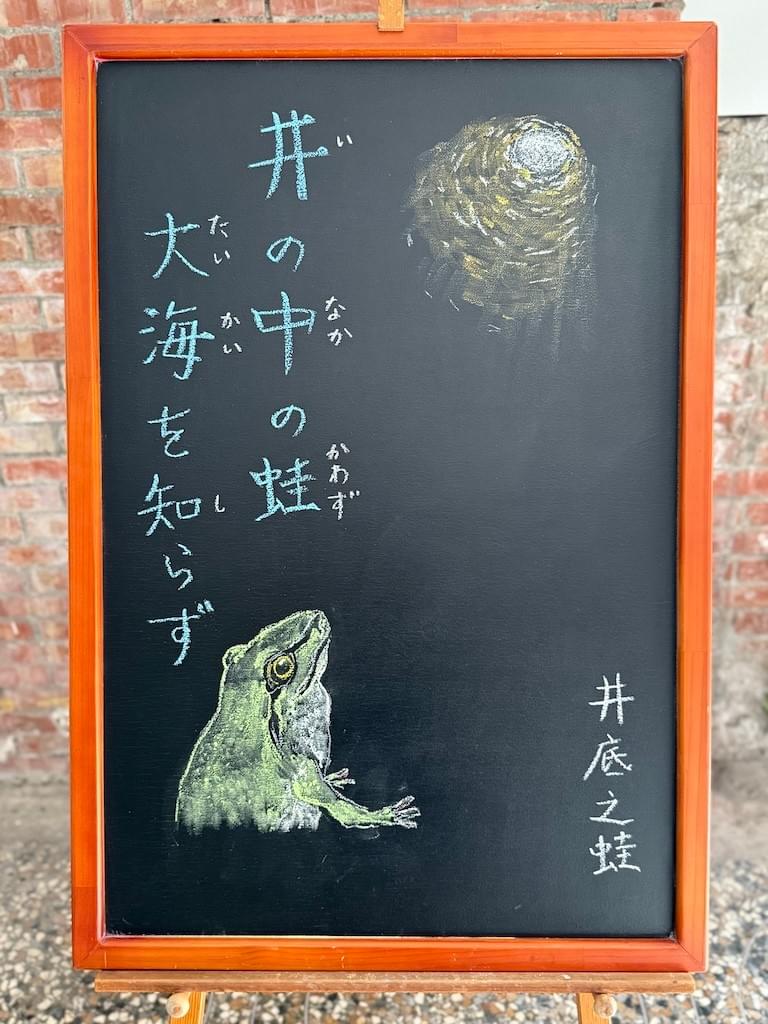 井の中の蛙
いなかかわず
大海を知らず
たいかいし
井底之蛙